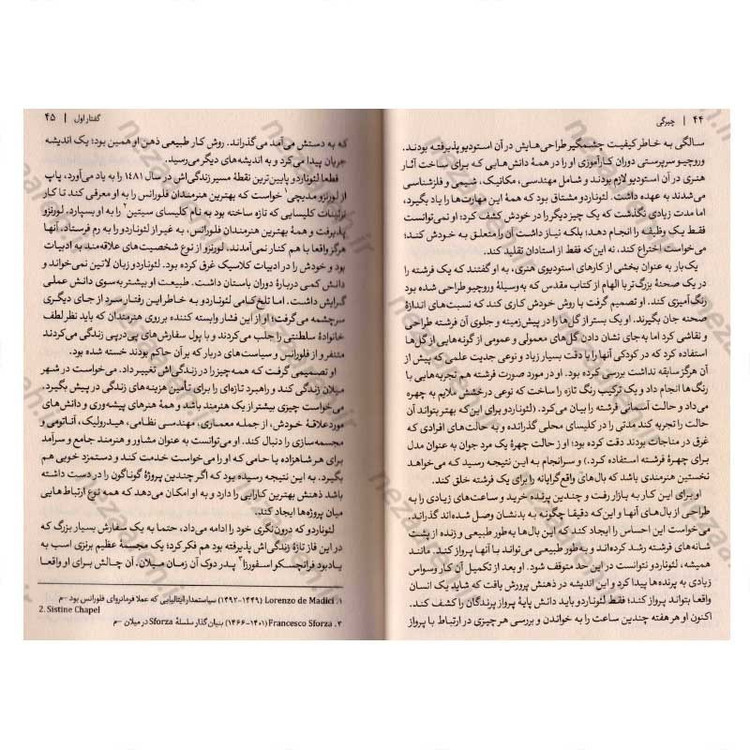 ۴۴ | چیرگی
سالگی به خاطر کیفیت چشمگیر طراحی‌هایش در آن استودیو پذیرفته بودند.
وروچیو سرپرستی دوران کارآموزی او را در همهٔ دانش‌هایی که برای ساخت آثار
هنری در آن استودیو لازم بودند و شامل مهندسی، مکانیک، شیمی و فلزشناسی
می‌شدند به عهده داشت. لئوناردو مشتاق بود که همهٔ این مهارت‌ها را یاد بگیرد،
اما مدت زیادی نگذشت که یک چیز دیگر را در خودش کشف کرد: او نمی‌توانست
فقط یک وظیفه را انجام دهد؛ بلکه نیاز داشت آن را متعلق به خودش کند؛
می‌خواست اختراع کند، نه این‌که فقط از استادان تقلید کند.
یک‌بار به عنوان بخشی از کارهای استودیوی هنری، به او گفتند که یک فرشته را
در یک صحنهٔ بزرگ‌تر با الهام از کتاب مقدس که به‌وسیلهٔ وروچیو طراحی شده بود
رنگ‌آمیزی کند. او تصمیم گرفت با روش خودش کاری کند که نسبت‌های اندازهٔ
صحنه جان بگیرند. او یک بستر از گل‌ها را در پیش‌زمینه و جلوی آن فرشته طراحی
و نقاشی کرد اما به‌جای نشان دادن گل‌های معمولی و عمومی از گونه‌هایی از گل‌ها
استفاده کرد که در کودکی آنها را با دقت بسیار زیاد و نوعی جدیت علمی که پیش از
آن هرگز سابقه نداشت بررسی کرده بود. او در مورد صورت فرشته هم تجربه‌هایی با
رنگ‌ها انجام داد و یک ترکیب رنگ تازه را ساخت که نوعی درخشش ملایم به چهره
می‌داد و حالت آسمانی فرشته را بیان می‌کرد. (لئوناردو برای این‌که بهتر بتواند آن
حالت را تجربه کند مدتی را در کلیسای محلی گذرانده و به حالت‌های افرادی که
غرق در مناجات بودند دقت کرده بود؛ او از حالت چهرهٔ یک مرد جوان به عنوان مدل
برای چهرهٔ فرشته استفاده کرد.) و سرانجام به این نتیجه رسید که می‌خواهد
نخستین هنرمندی باشد که بال‌های واقع‌گرایانه را برای یک فرشته خلق کند.
او برای این کار به بازار رفت و چندین پرنده خرید و ساعت‌های زیادی را به
طراحی از بال‌های آنها و این‌که دقیقا چگونه به بدنشان وصل شده‌اند گذراند.
می‌خواست این احساس را ایجاد کند که این بال‌ها به‌طور طبیعی و زنده از پشت
شانه‌های فرشته رشد کرده‌اند و به‌طور طبیعی می‌تواند با آنها پرواز کند. مانند
همیشه، لئوناردو نتوانست در این حد متوقف شود. او بعد از تکمیل آن کار وسواس
زیادی به پرنده‌ها پیدا کرد و این اندیشه در ذهنش پرورش یافت که شاید یک انسان
واقعا بتواند پرواز کند؛ فقط لئوناردو باید دانش پایهٔ پرواز پرندگان را کشف کند.
اکنون او هر هفته چندین ساعت را به خواندن و بررسی هر چیزی در ارتباط با پرواز
گفتار اول | ۴۵
که به دستش می‌آمد می‌گذراند. روش کار طبیعی ذهن او همین بود؛ یک اندیشه
جریان پیدا می‌کرد و به اندیشه‌های دیگر می‌رسید.
قطعا لئوناردو پایین‌ترین نقطهٔ مسیر زندگی‌اش در سال ۱۴۸۱ را به یاد می‌آورد. پاپ
از لورنزو مدیچی۱ خواست که بهترین هنرمندان فلورانس را به او معرفی کند تا کار
تزئینات کلیسایی که تازه ساخته بود به نام کلیسای سیتین۲ را به او بسپارد. لورنزو
پذیرفت و همهٔ بهترین هنرمندان فلورانس، به غیر از لئوناردو را به رم فرستاد. آنها
هرگز واقعا با هم کنار نمی‌آمدند. لورنزو از نوع شخصیت‌های علاقه‌مند به ادبیات
بود و خودش را در ادبیات کلاسیک غرق کرده بود. لئوناردو زبان لاتین نمی‌خواند و
دانش کمی دربارهٔ دوران باستان داشت. طبیعت او بیشتر به‌سوی دانش عملی
گرایش داشت. اما تلخ‌کامی لئوناردو به خاطر این رفتار سرد از جای دیگری
سرچشمه می‌گرفت؛ او از این فشار وابسته کننده بر روی هنرمندان که باید نظر لطف
خانوادهٔ سلطنتی را جلب می‌کردند و با پول سفارش‌های پی‌درپی زندگی می‌کردند
متنفر و از فلورانس و سیاست‌های دربار که بر آن حاکم بودند خسته شده بود.
او تصمیمی گرفت که همه‌چیز را در زندگی‌اش تغییر داد. می‌خواست در شهر
میلان زندگی کند و راهبرد تازه‌ای را برای تأمین هزینه‌های زندگی در پیش بگیرد.
می‌خواست چیزی بیشتر از یک هنرمند باشد و همهٔ هنرهای پیشه‌وری و دانش‌های
مورد علاقهٔ خودش، از جمله معماری، مهندسی نظامی، هیدرولیک، آناتومی و
مجسمه‌سازی را دنبال کند. او می‌توانست به عنوان مشاور و هنرمند جامع و سرآمد
برای هر شاهزاده یا حامی که او را می‌خواست خدمت کند و دستمزد خوبی هم
بگیرد. به این نتیجه رسیده بود که اگر چندین پروژهٔ گوناگون را در دست داشته
باشد ذهنش بهترین کارایی را دارد و به او امکان می‌دهد که همه نوع ارتباط‌هایی
میان پروژه‌ها ایجاد کند.
لئوناردو که درون‌نگری خود را ادامه می‌داد، حتما به یک سفارش بسیار بزرگ که
در این فاز تازهٔ زندگی‌اش پذیرفته بود هم فکر کرد؛ یک مجسمهٔ عظیم برنزی اسب به
یادبود فرانچسکو اسفورزا۳ پدر دوک آن زمان میلان. آن چالش برای او واقعا
۱. Lorenzo de Madici (۱۴۴۹-۱۴۹۲) سیاستمدار ایتالیایی که عملا فرمانروای فلورانس بود -م
2. Sistine Chapel
۳. Francesco Sforza (۱۴۰۱-۱۴۶۶) بنیان‌گذار سلسلهٔ Sforza در میلان -م